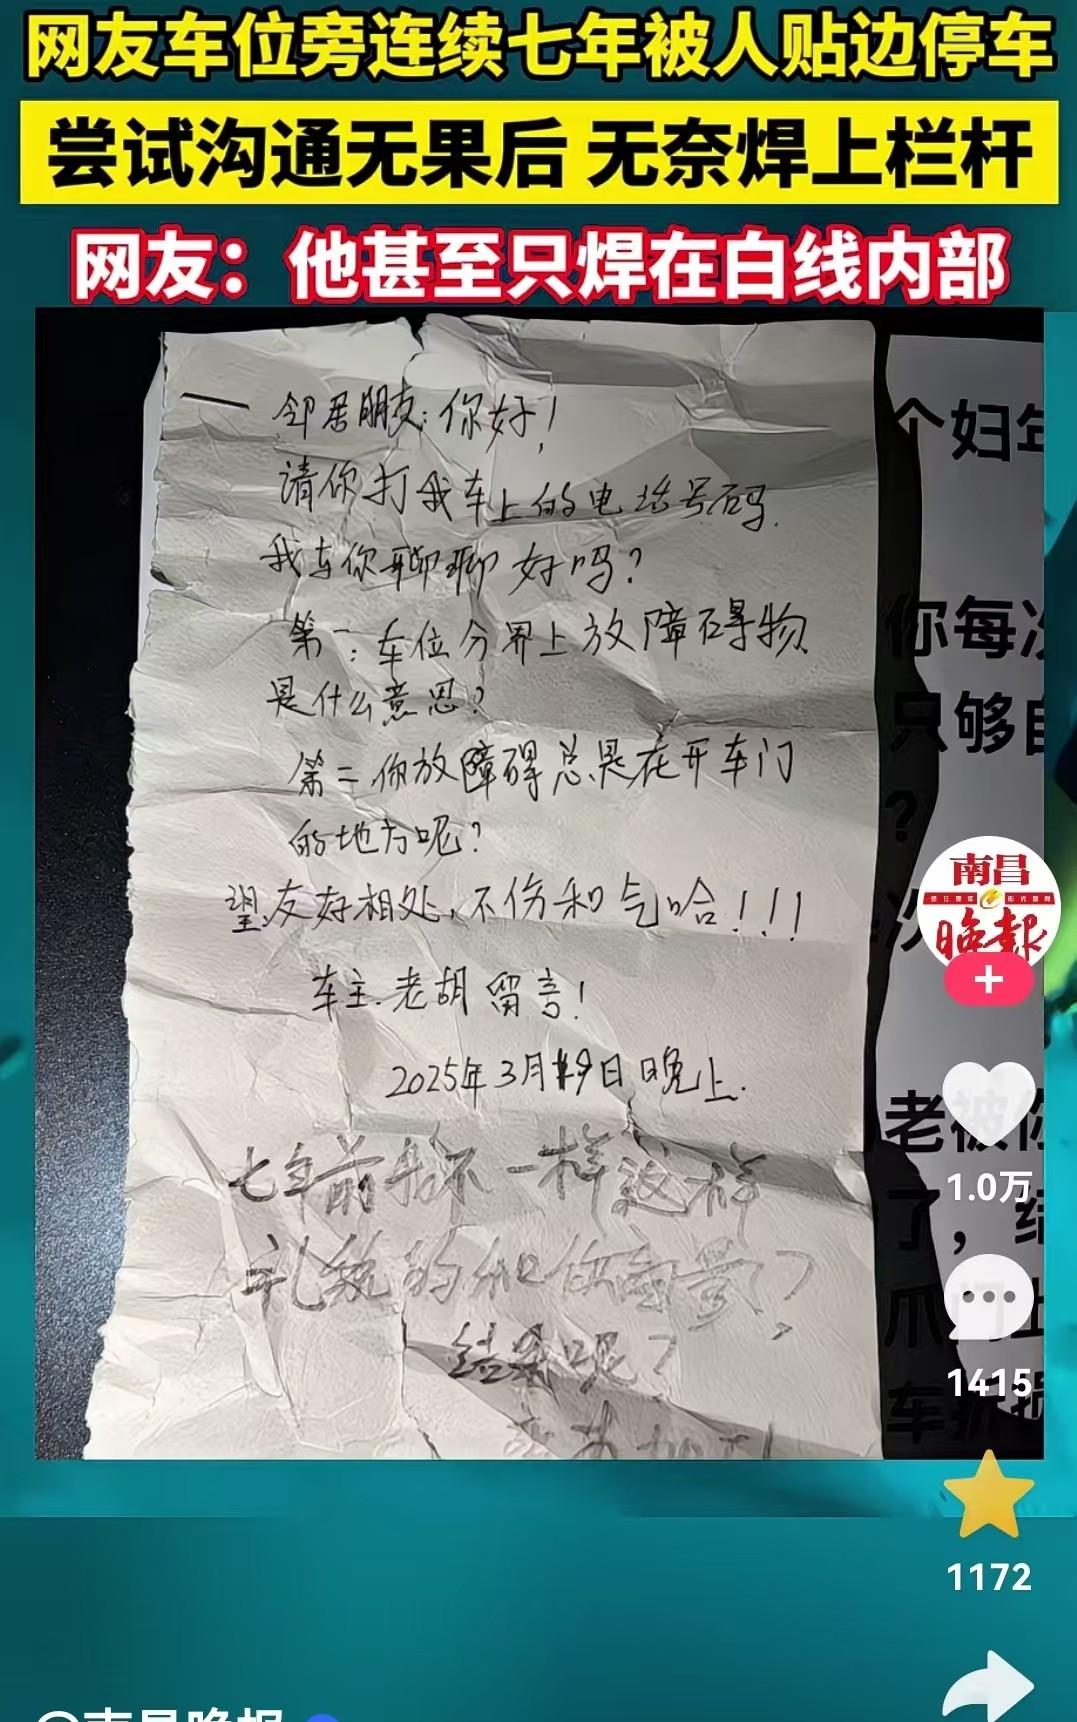 网友车位旁连续七年被人贴边停车
尝试沟通无果后 无奈焊上栏杆
网友：他甚至只焊在白线内部
邻居朋友：你好！
请你打我车上的电话号码.
我与你聊聊好吗？
第一：车位分界上放障碍物
是什么意思？
第二 你放障碍总是在开车门
的地方呢？
望友好相处，不伤和气哈！！！
车主.老胡留言！
2025年3月19日晚上.
七年前我不一样这样
礼貌的和你商量？
结果呢？
个妇年
你每次
只够自
？
次
老被你
了，结
南昌
晚报
1.0万
1415
1172
@南昌晚报